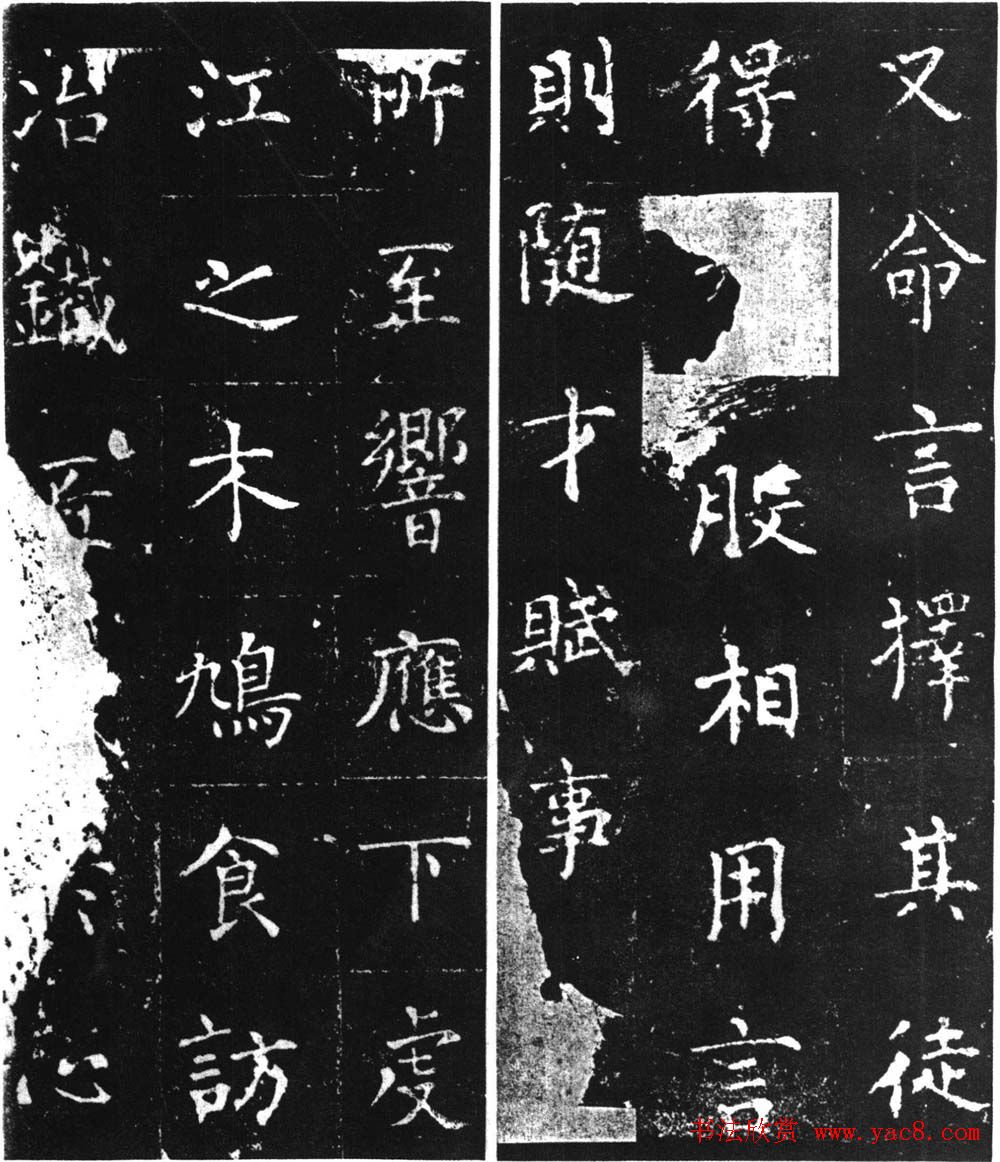 又命言擇其徒
得股相用言
則随才賦事
所至響應下虔
江之木鳩食訪
冶鐵心
书法欣赏 www.yac8.com